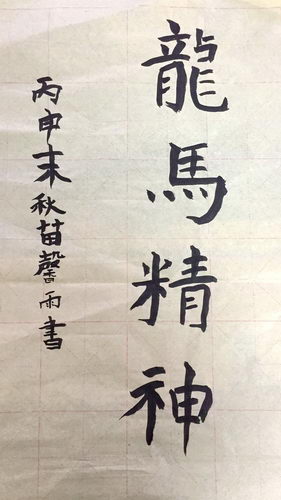 龍馬精神
丙申末秋苗馨雨書